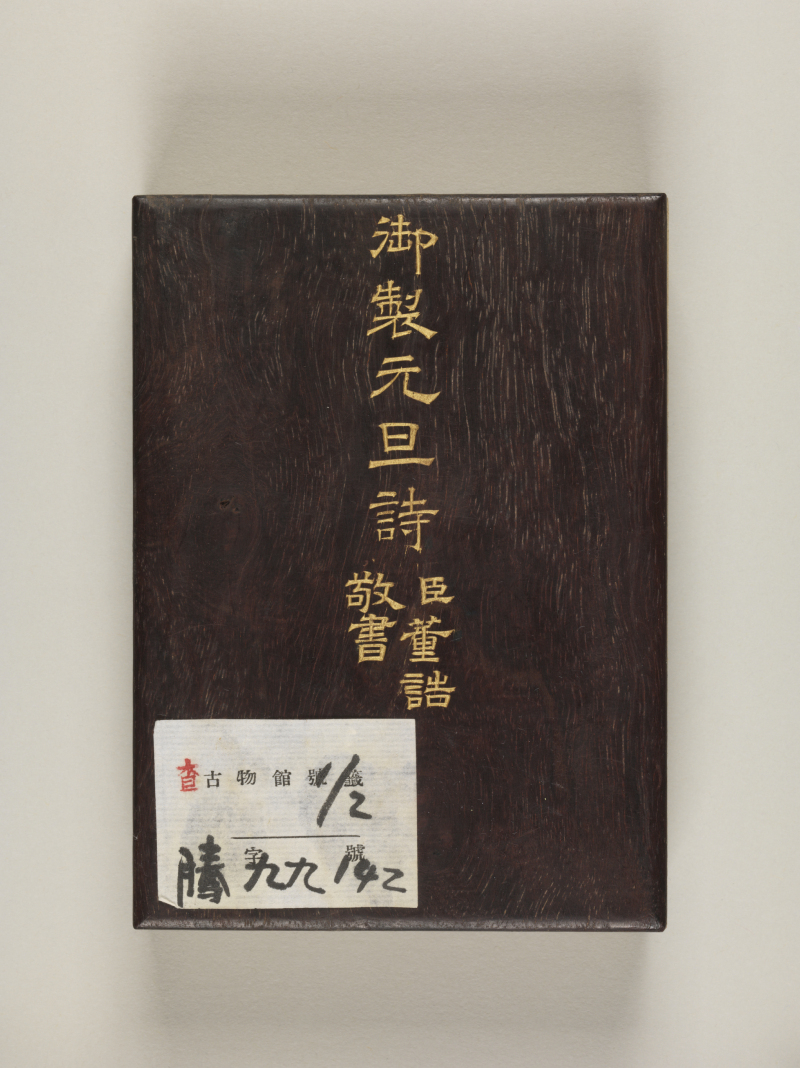 御製元旦詩
臣董誥
敬書
查
古物館號籤
1/2
字 號
騰九九 142